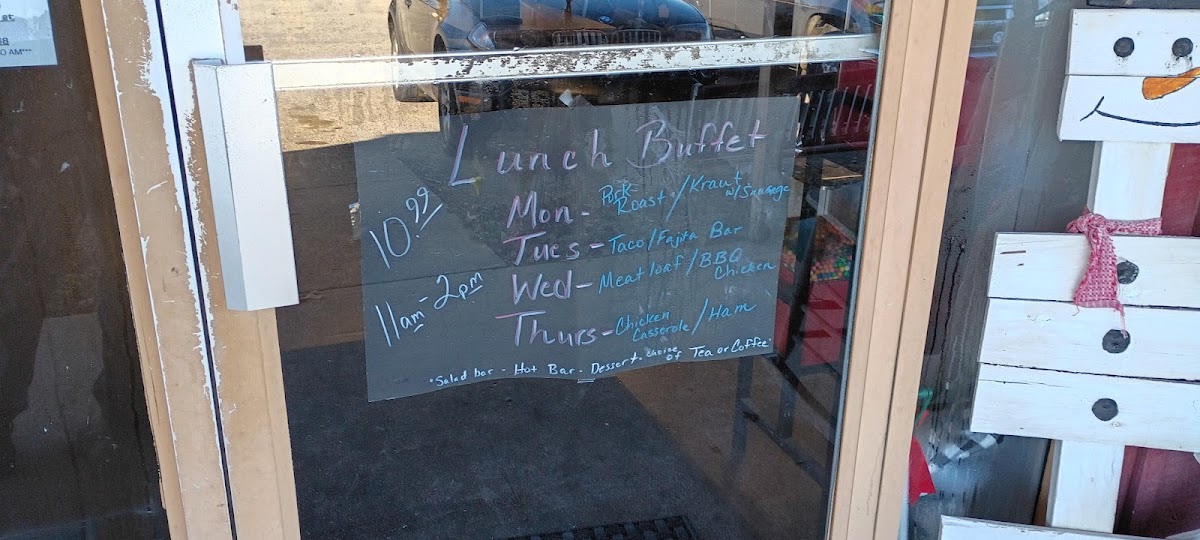 Lunch Buffet
10.99
11am-2pm
Mon - Pork Roast / Kraut w/ Sausage
Tues - Taco/Fajita Bar
Wed - Meatloaf / BBQ Chicken
Thurs - Chicken Casserole / Ham
*Salad bar - Hot Bar - Dessert - choice of Tea or Coffee*